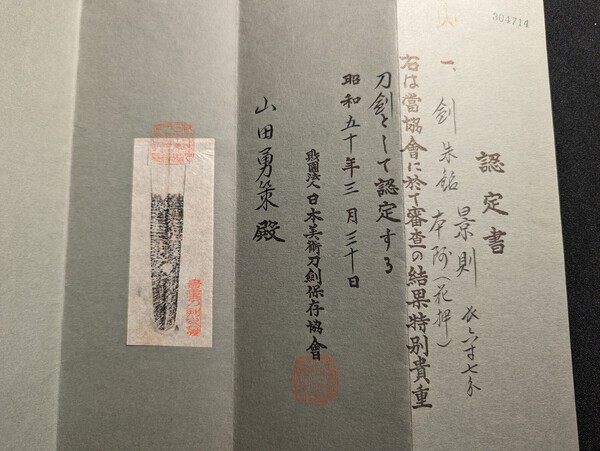 304714
認定書
一、剣 朱銘 景則 長六寸七分
本阿(花押)
右は當協會に於て審査の結果特別貴重
刀剣として認定する
昭和五十年三月三十日
財團法人日本美術刀剣保存協會
山田勇策殿